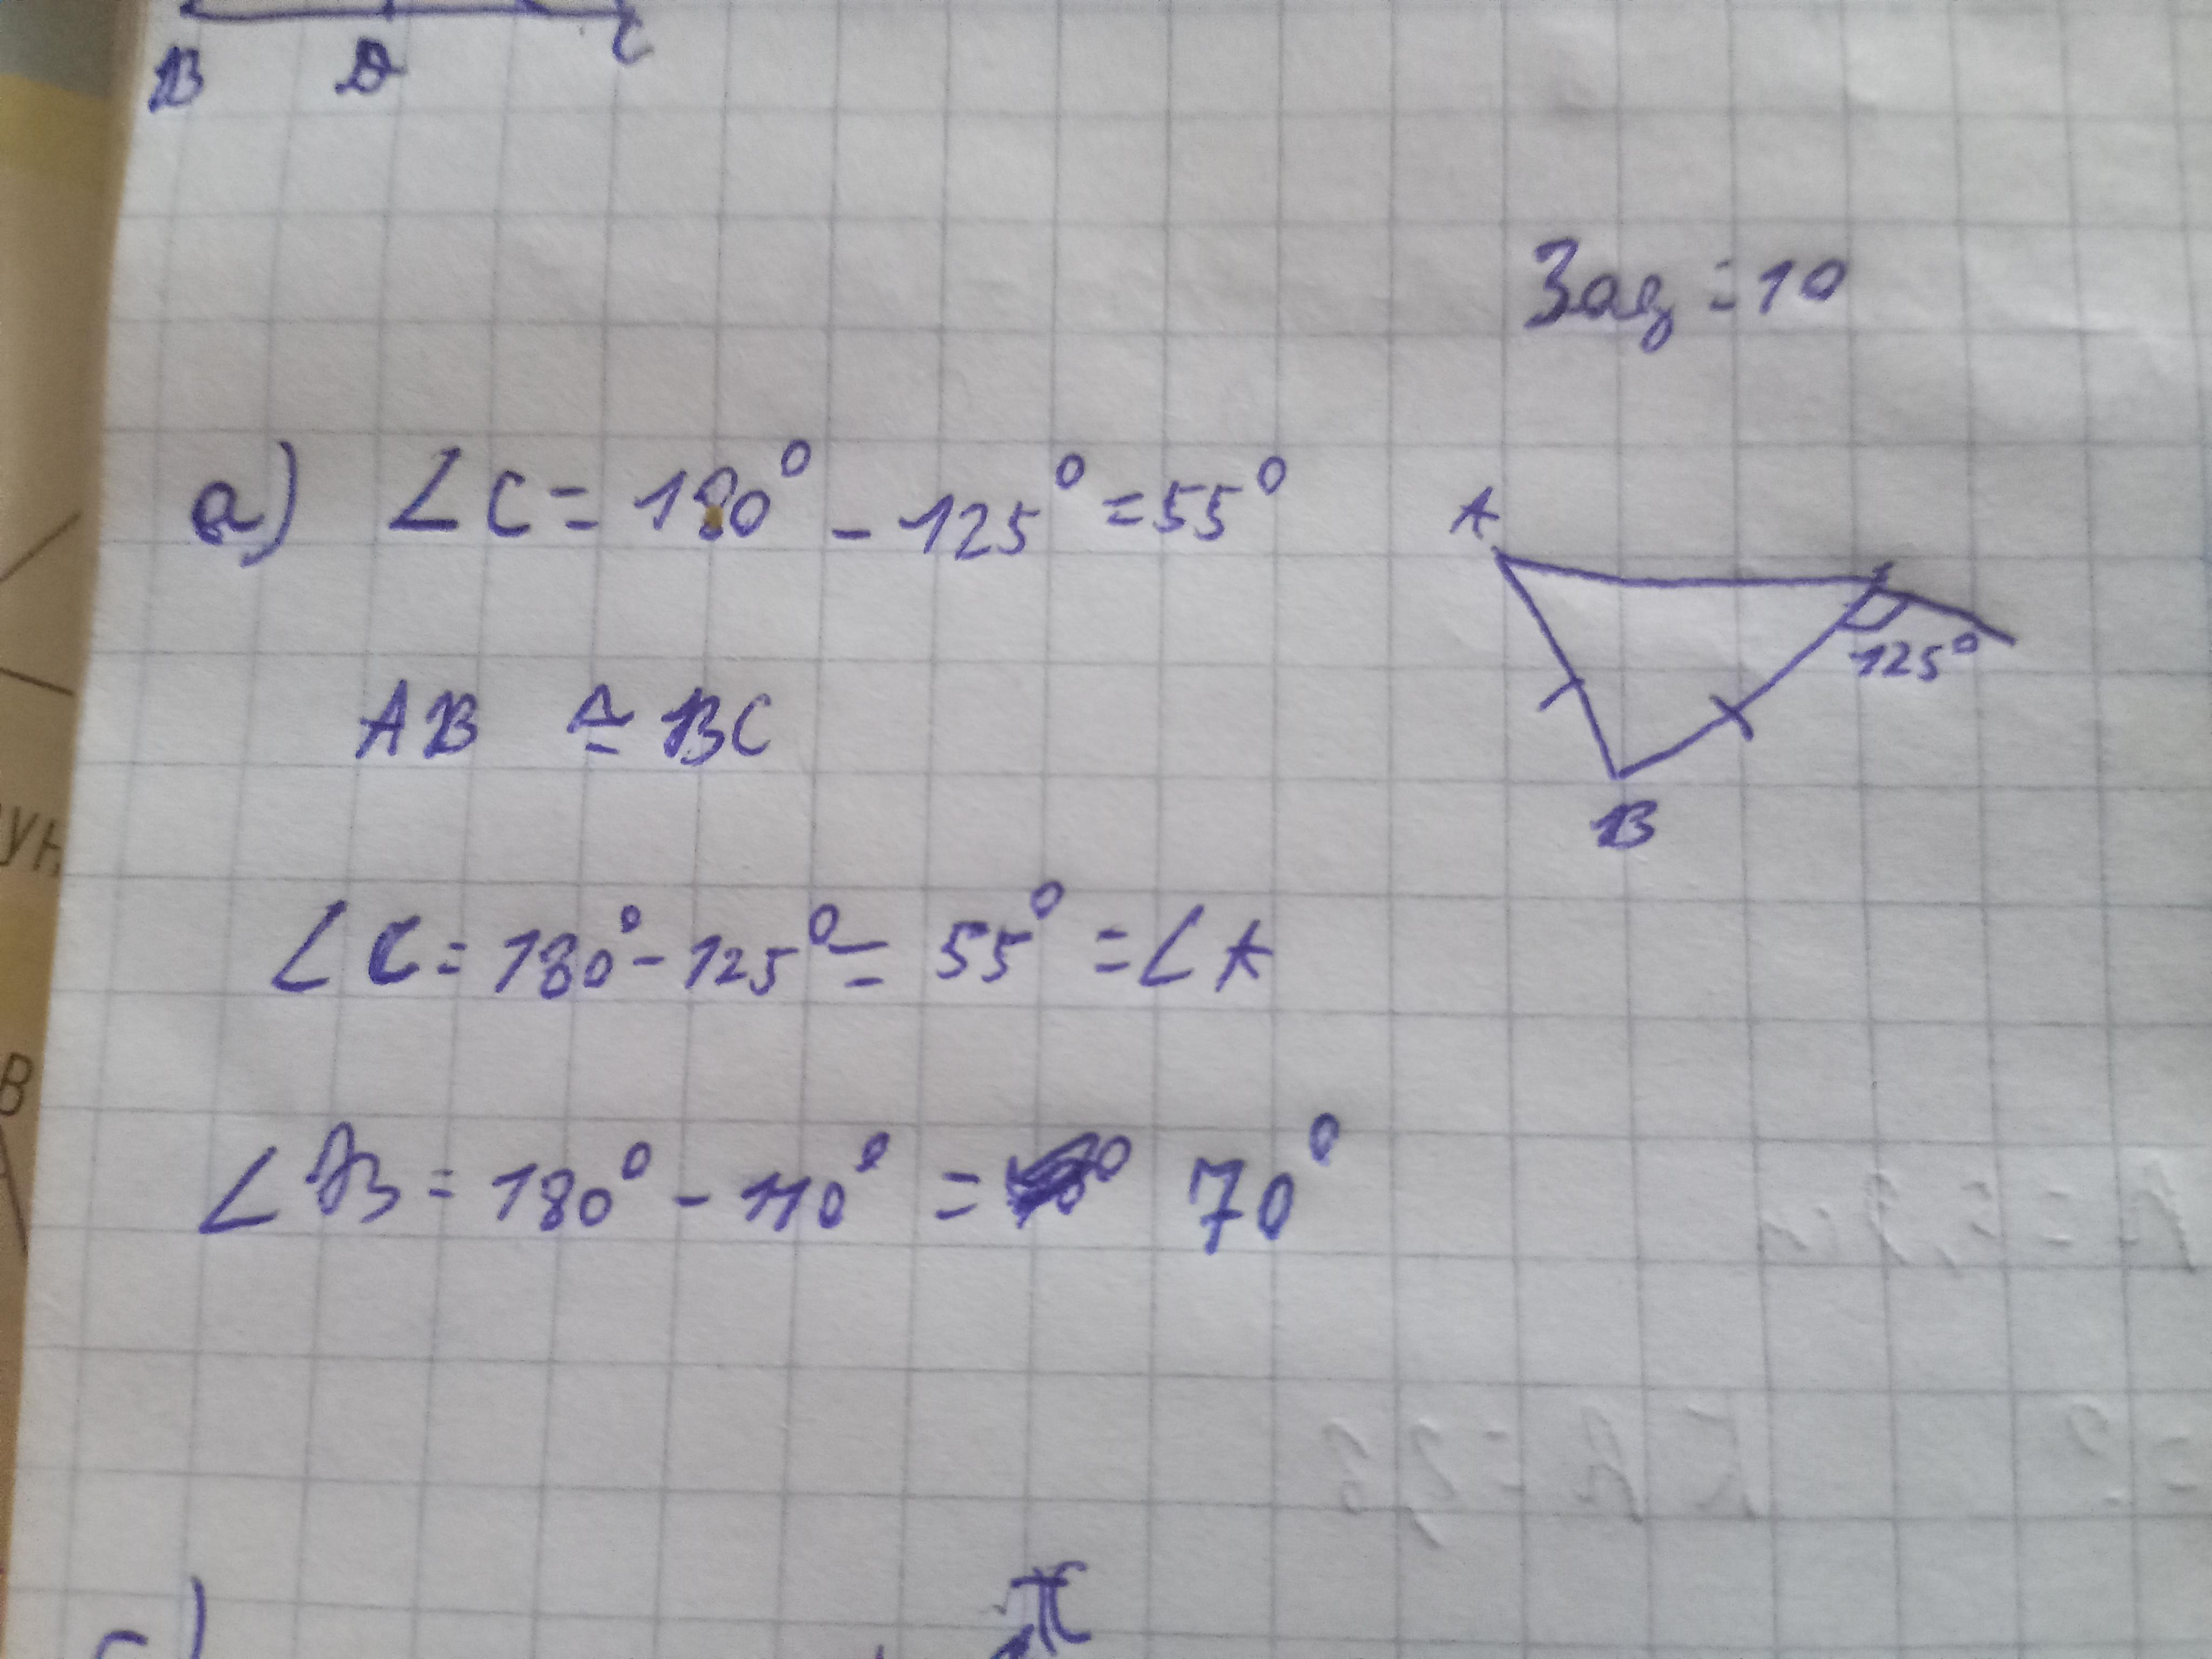 B D C
Заg = 10
а) ∠C = 180° - 125° = 55°
A
125°
AB ≅ BC
B
∠C = 180° - 125° = 55° = ∠A
∠B = 180° - 110° = 70°
ун,
В